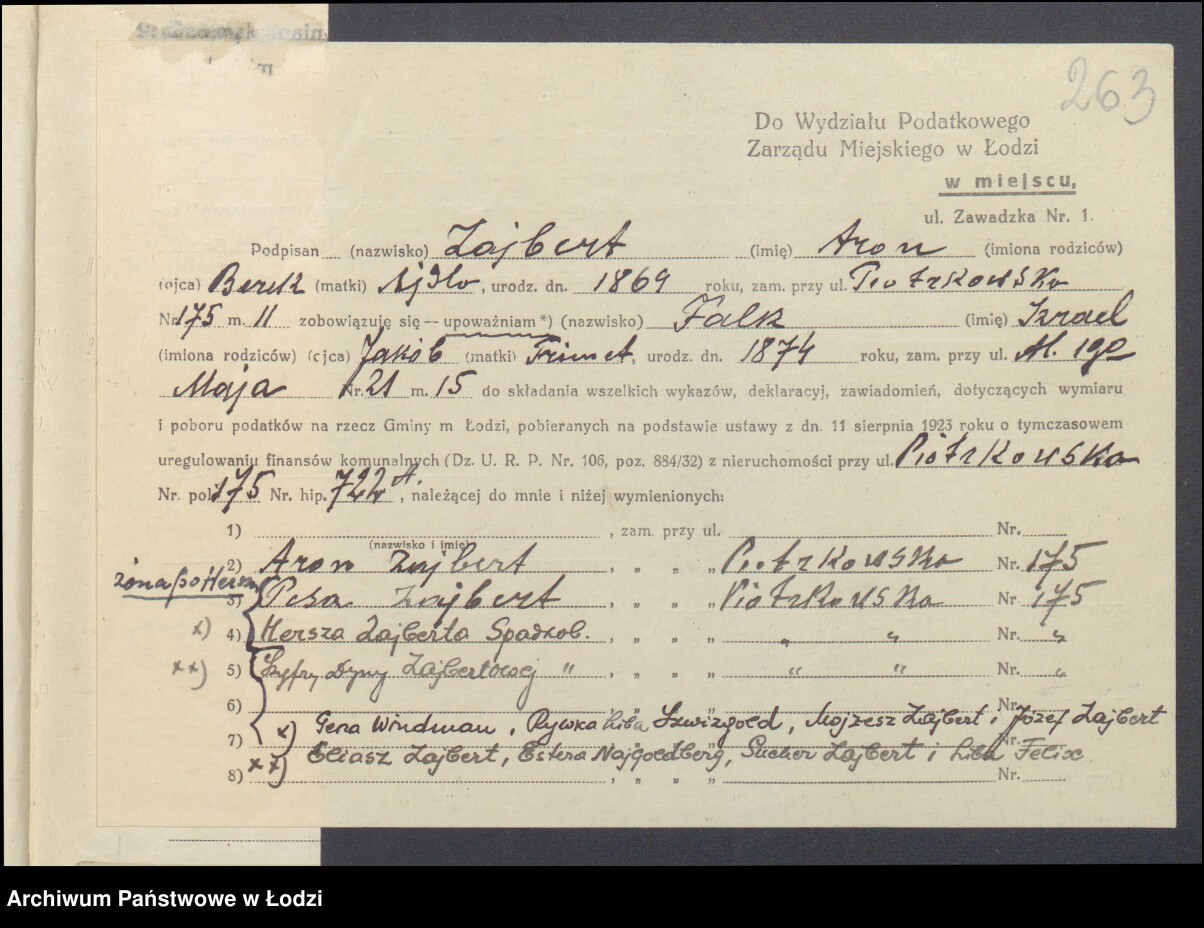 263
Do Wydziału Podatkowego
Zarządu Miejskiego w Łodzi
w miejscu,
ul. Zawadzka Nr. 1.
Podpisan (nazwisko) Zajbert (imię) Aron (imiona rodziców)
(ojca) Berek (matki) Ajdla, urodz. dn. 1869 roku, zam. przy ul. Piotrkowska
Nr 175 m. 11 zobowiązuję się — upoważniam *) (nazwisko) Falk (imię) Izrael
(imiona rodziców) (ojca) Jakób (matki) Frimet, urodz. dn. 1874 roku, zam. przy ul. Al. 1go
Maja Nr. 21 m. 15 do składania wszelkich wykazów, deklaracyj, zawiadomień, dotyczących wymiaru
i poboru podatków na rzecz Gminy m Łodzi, pobieranych na podstawie ustawy z dn. 11 sierpnia 1923 roku o tymczasowem
uregulowaniu finansów komunalnych (Dz. U. R. P. Nr. 106, poz. 884/32) z nieruchomości przy ul. Piotrkowska
Nr. pol 175 Nr. hip. 722 A., należącej do mnie i niżej wymienionych:
1) , zam. przy ul. Nr.
(nazwisko i imię)
2) Aron Zajbert , „ „ „ Piotrkowska Nr. 175
żona po Herszu 3) Pesa Zajbert , „ „ „ Piotrkowska Nr 175
x) 4) Hersza Zajberta Spadkob. , „ „ „ „ „ Nr. „
xx) 5) Szyfry Dyny Zajbertowej " , „ „ „ " " Nr. „
6) , „ „ „ Nr.
x) Gena Windman, Rywka Liba Szwizgold, Mojżesz Zajbert i Józef Zajbert
7) „ Nr.
xx) Eliasz Zajbert, Estera Najgoldberg, Sucher Zajbert i Liba Felix
8) , „ „ „ Nr.
Archiwum Państwowe w Łodzi